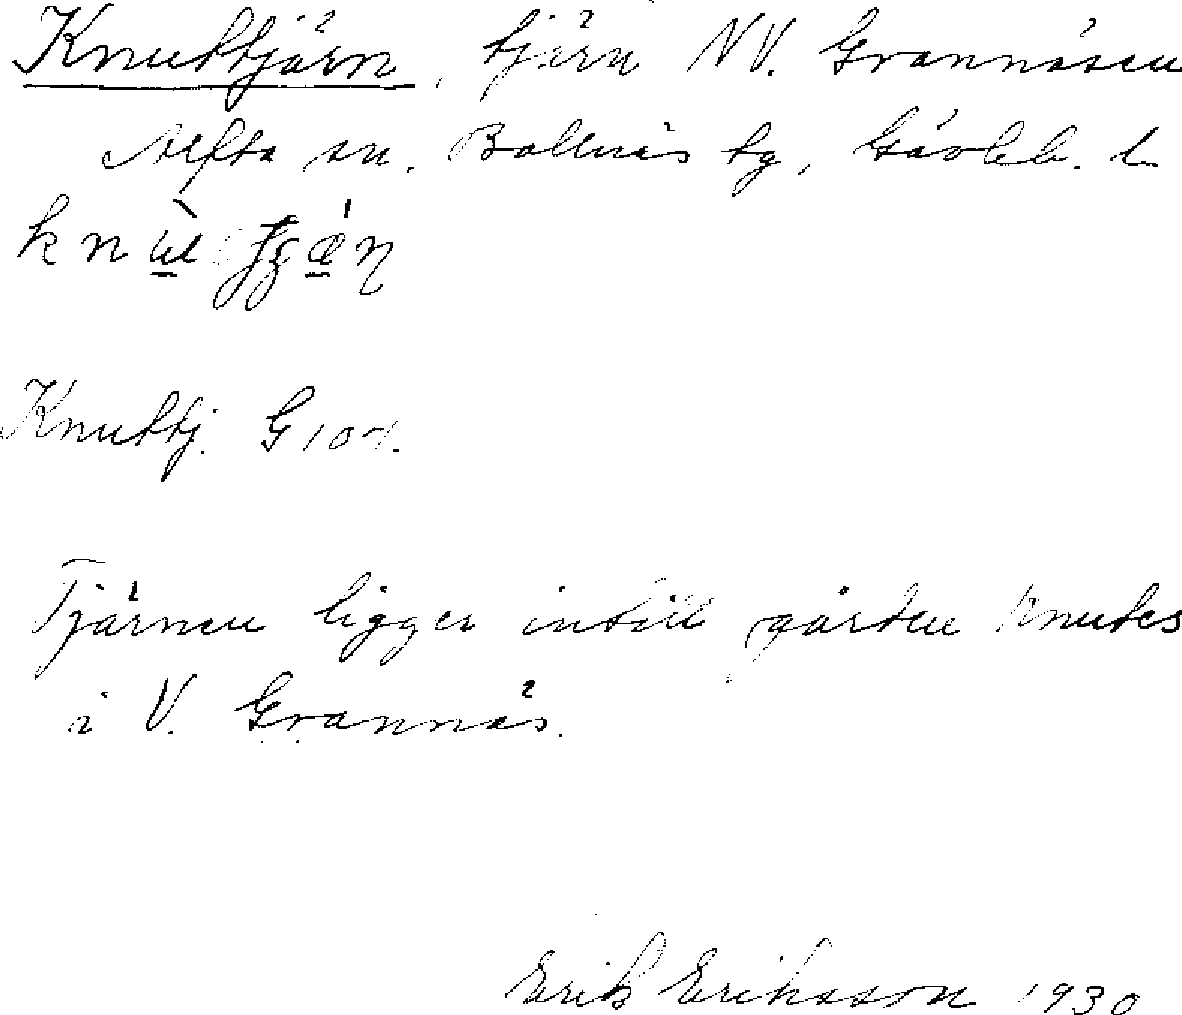 Knuttjärn, tjärn NV. Grannäsen
Alfta sn. Bollnäs tg, Gävleb. l.
Knuttj. G 107.
Tjärnen ligger intill gården Knutes
i V. Grannäs.
Erik Eriksson 1930